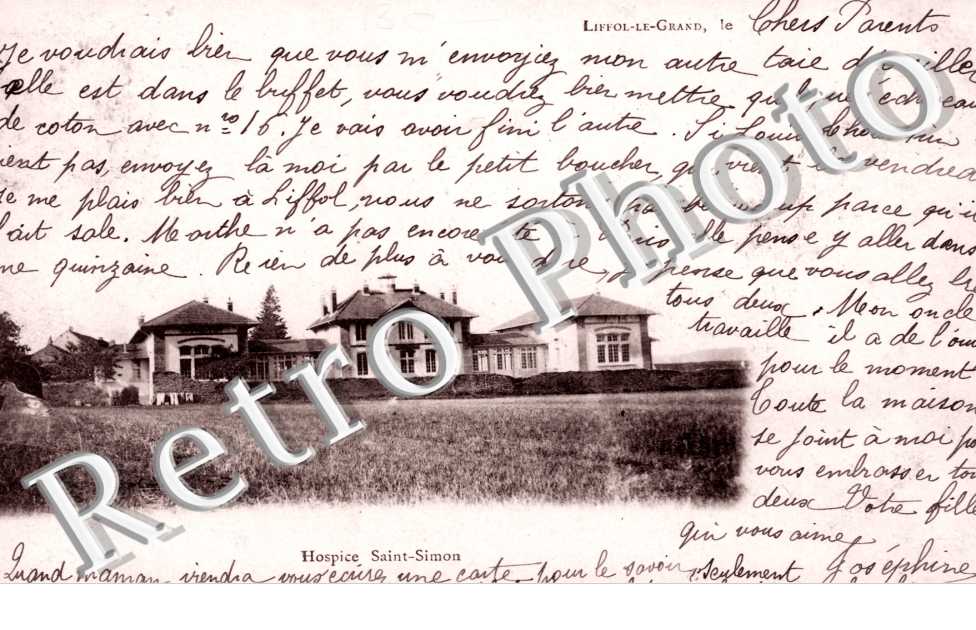 LIFFOL-LE-GRAND, le Chers Parents
Je voudrais bien que vous m'envoyiez mon autre taie
elle est dans le buffet, vous voudrez bien mettre
de coton avec nro 16. Je vais avoir fini l'autre. Si
vient pas, envoyez là moi par le petit boucher, qui vient
Je me plais bien à Liffol, nous ne sortons pas beaucoup parce qu'il
fait sale. Marthe n'a pas encore pense y aller dans
une quinzaine. Reien de plus à vous dire, je pense que vous allez bien
tous deux. Mon oncle
travaille il a de l'ou
pour le moment
Toute la maison
se joint à moi po
vous embrasser tou
deux Votre fille
qui vous aime
Joséphine
Hospice Saint-Simon
Quand maman viendra vous écrirez une carte pour le savoir seulement
Retro Photo